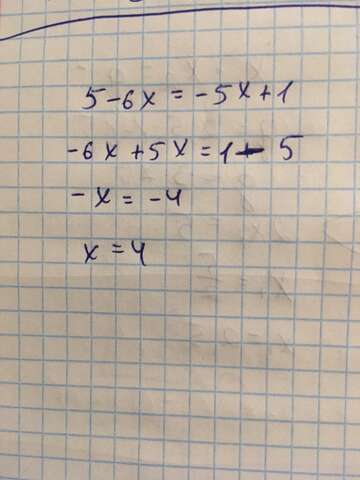 5-6x = -5x+1
-6x+5x=1-5
-x = -4
x = 4